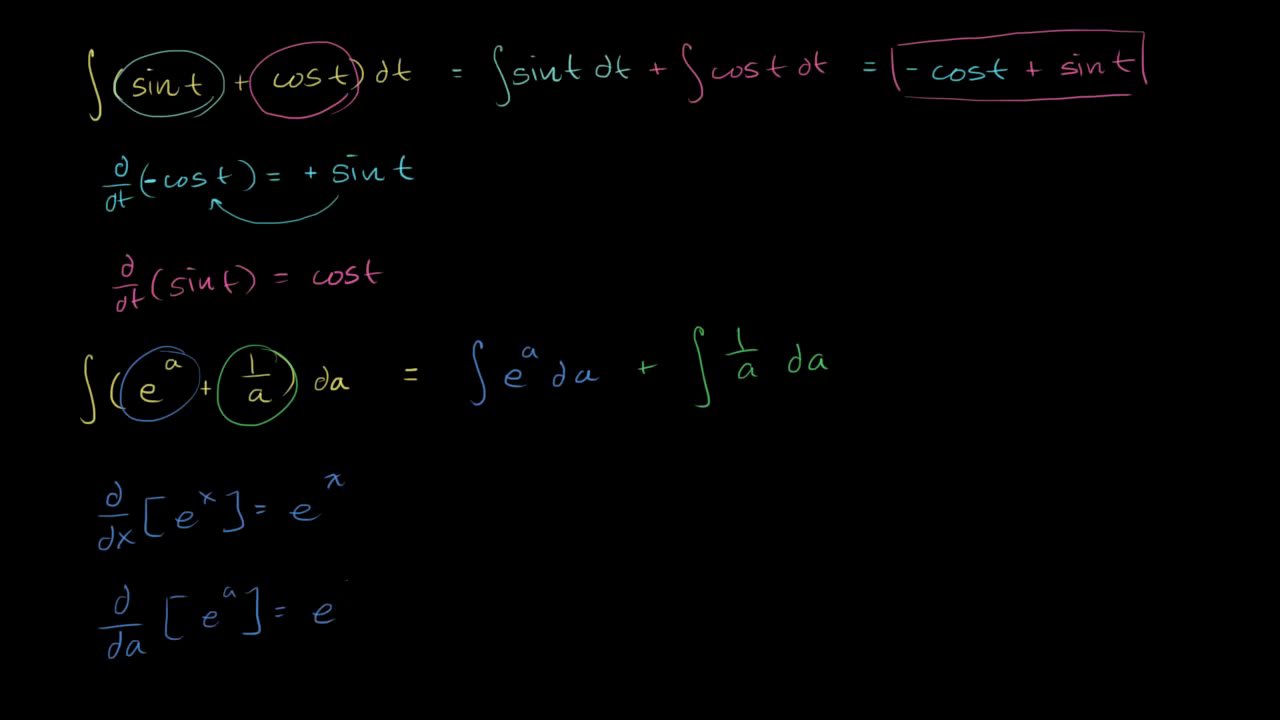 ∫ (sin t + cos t) dt = ∫ sin t dt + ∫ cos t dt = - cos t + sin t
d/dt (-cos t) = + sin t
d/dt (sin t) = cos t
∫ (e^a + 1/a) da = ∫ e^a da + ∫ 1/a da
d/dx [e^x] = e^x
d/da [e^a] = e